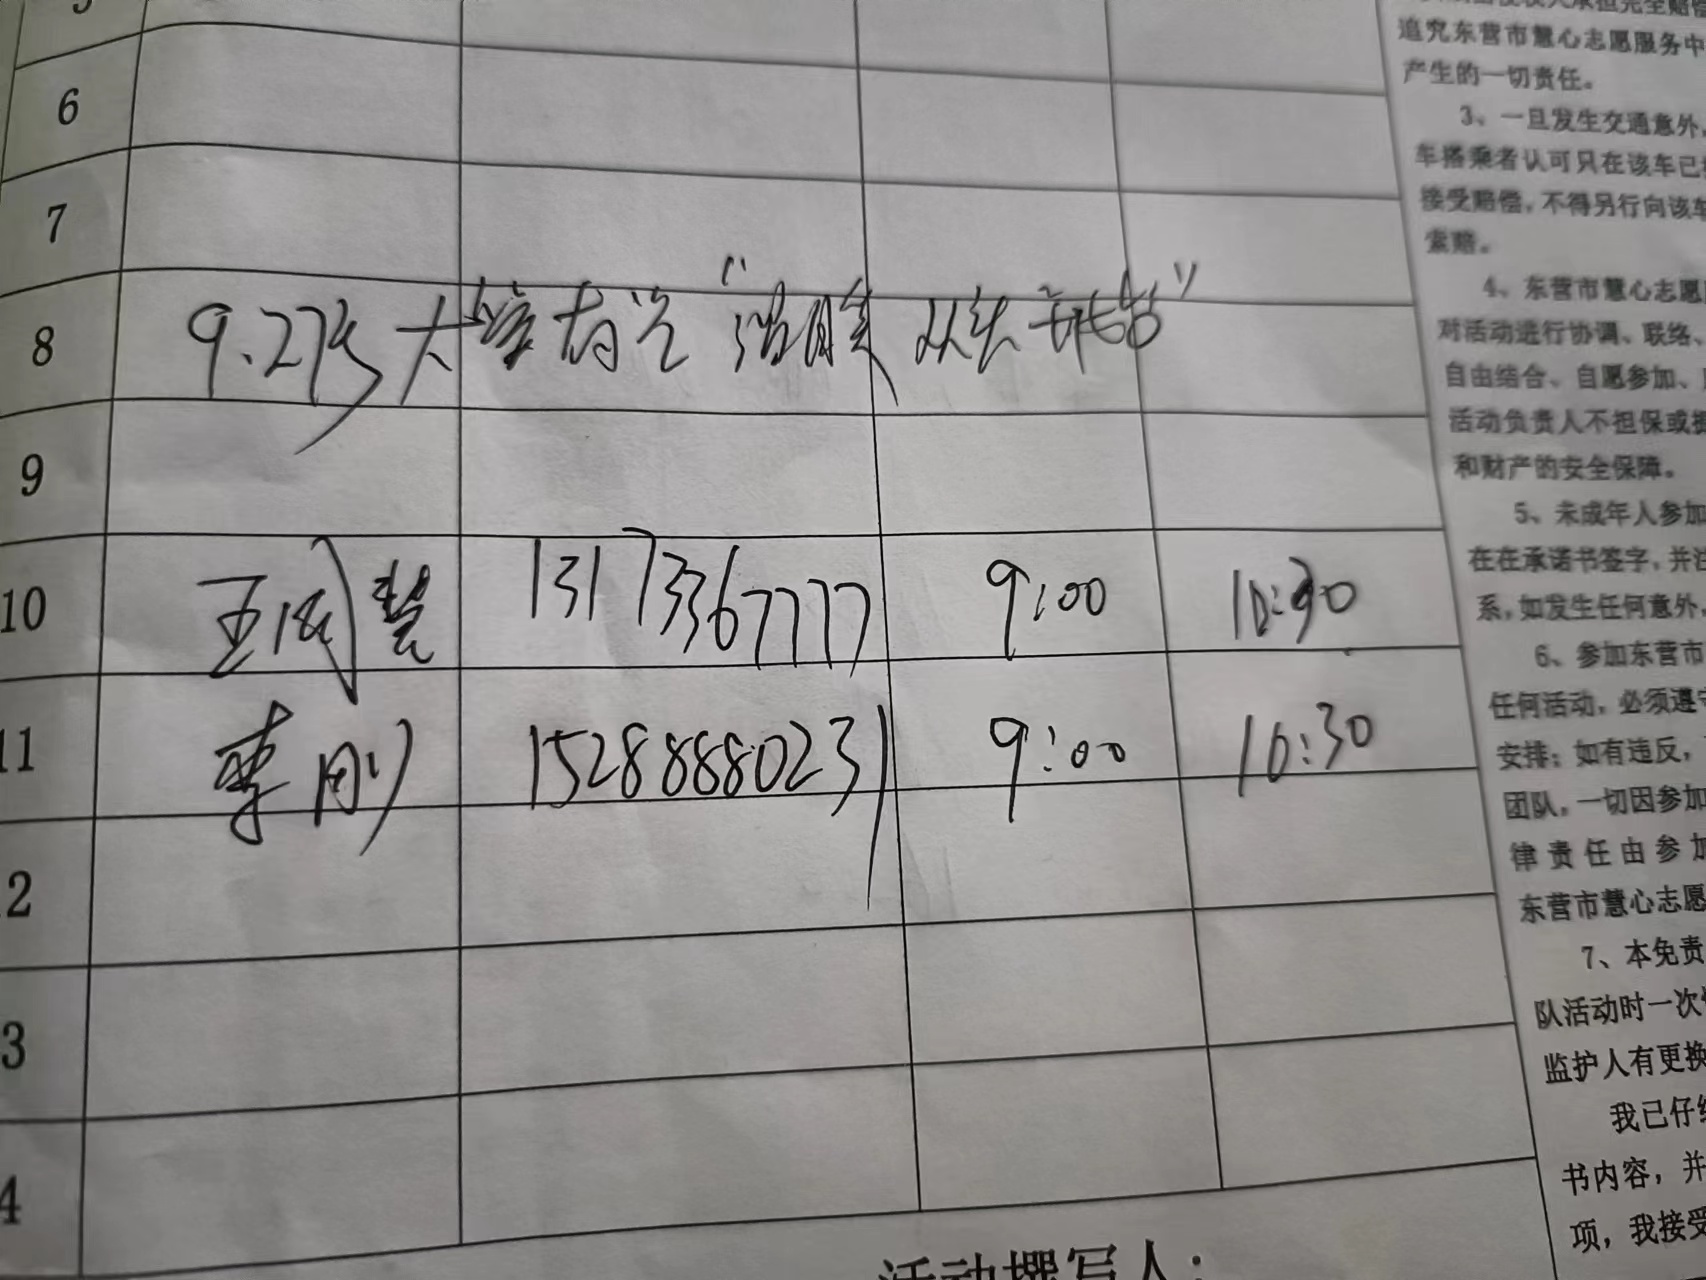 6
7
8 9.27 大 " 从 "
9
10 王 13173367777 9:00 10:30
11 李刚 15288880231 9:00 10:30
2
3
4
活动撰写人:
追究东营市慧心志愿服务中
产生的一切责任。
3、一旦发生交通意外,
车搭乘者认可只在该车已
接受赔偿,不得另行向该车
索赔。
4、东营市慧心志愿
对活动进行协调、联络、
自由结合、自愿参加、
活动负责人不担保或
和财产的安全保障。
5、未成年人参加
在在承诺书签字,并
系,如发生任何意外,
6、参加东营市
任何活动,必须遵守
安排;如有违反,
团队,一切因参加
律责任由参加
东营市慧心志愿
7、本免责
队活动时一次
监护人有更换
我已仔细
书内容,并
项,我接受